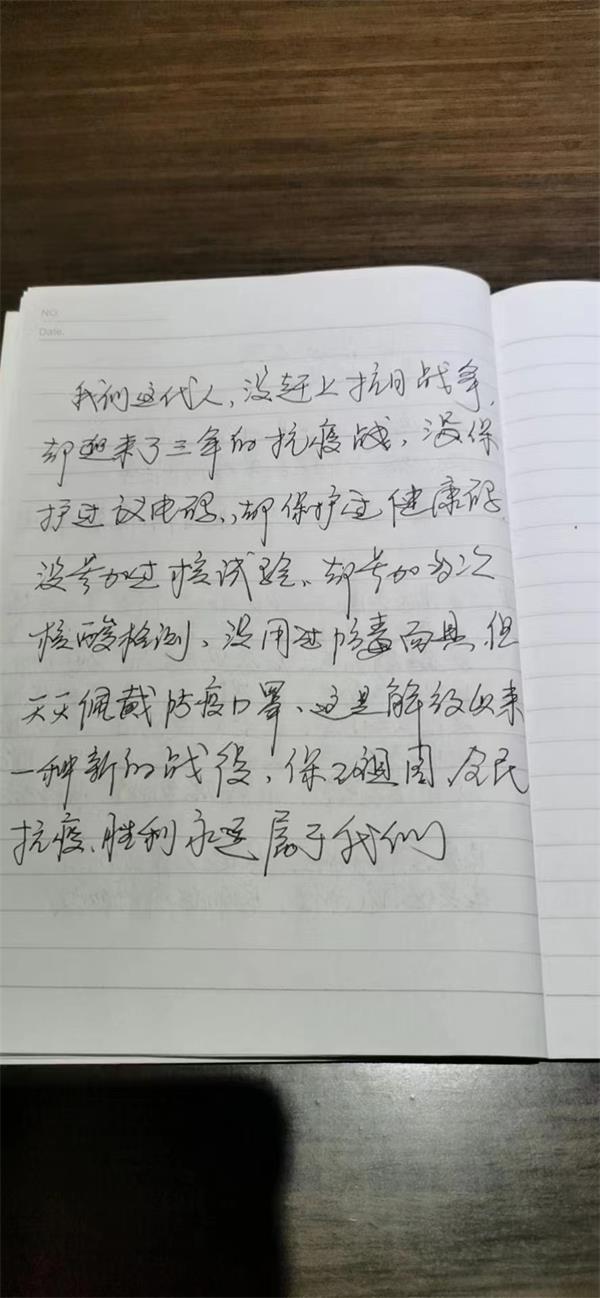 NO.
Date.
我们这代人,没赶上抗日战争,
却迎来了三年的抗疫战,没保
护过发电码,却保护过健康码
没参加过核试验、却参加多次
核酸检测、没用过防毒面具,但
天天佩戴防疫口罩、这是解放以来
一种新的战役,保卫祖国、全民
抗疫、胜利永远属于我们